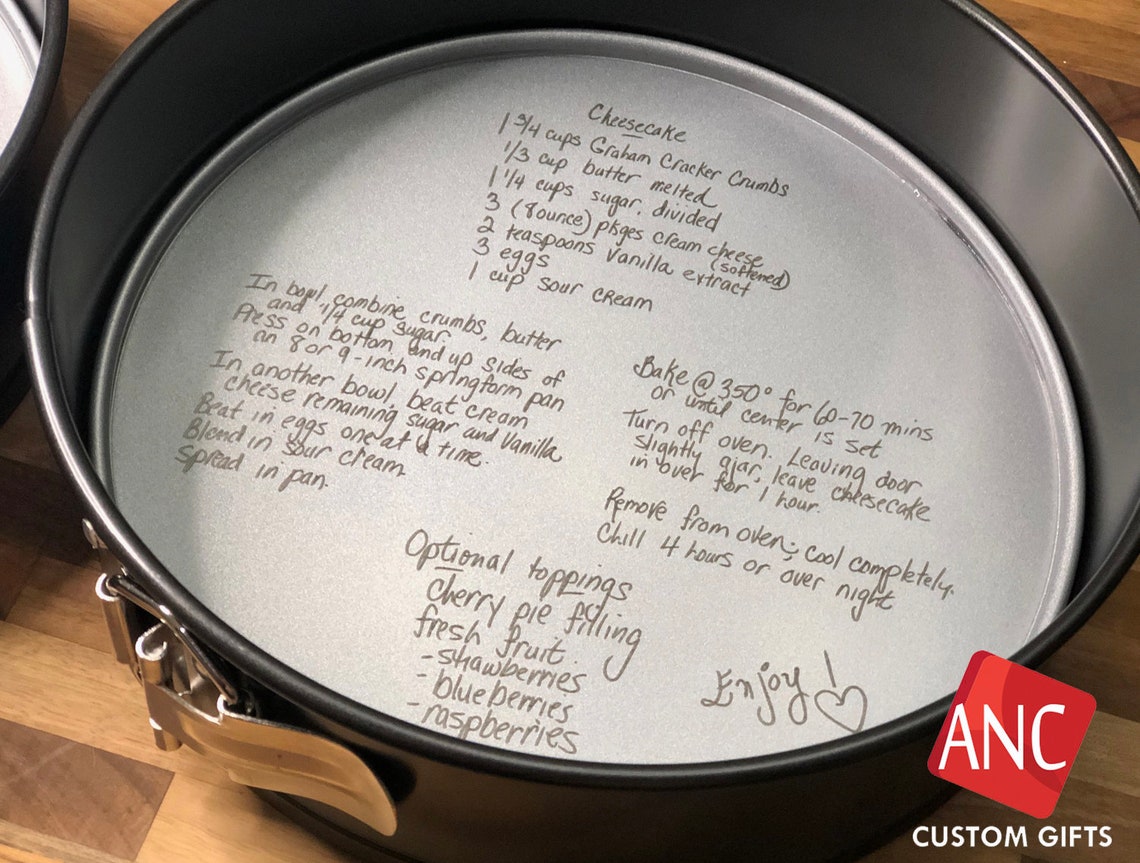 Cheesecake
1 3/4 cups Graham Cracker Crumbs
1/3 cup butter melted
1 1/4 cups sugar, divided
3 (8ounce) pkges cream cheese
(softened)
2 teaspoons Vanilla extract
3 eggs
1 cup sour cream
In bowl, combine crumbs, butter
and 1/4 cup sugar.
Press on bottom and up sides of
an 8 or 9-inch springform pan
In another bowl, beat cream
cheese remaining sugar and Vanilla
Beat in eggs one at a time.
Blend in sour cream.
Spread in pan.
Bake @ 350° for 60-70 mins
or until center is set
Turn off oven. Leaving door
slightly ajar, leave cheesecake
in over for 1 hour.
Remove from oven; cool completely.
Chill 4 hours or over night
Optional toppings
Cherry pie filling
fresh fruit
-strawberries
-blueberries
-raspberries
Enjoy!
ANC
CUSTOM GIFTS